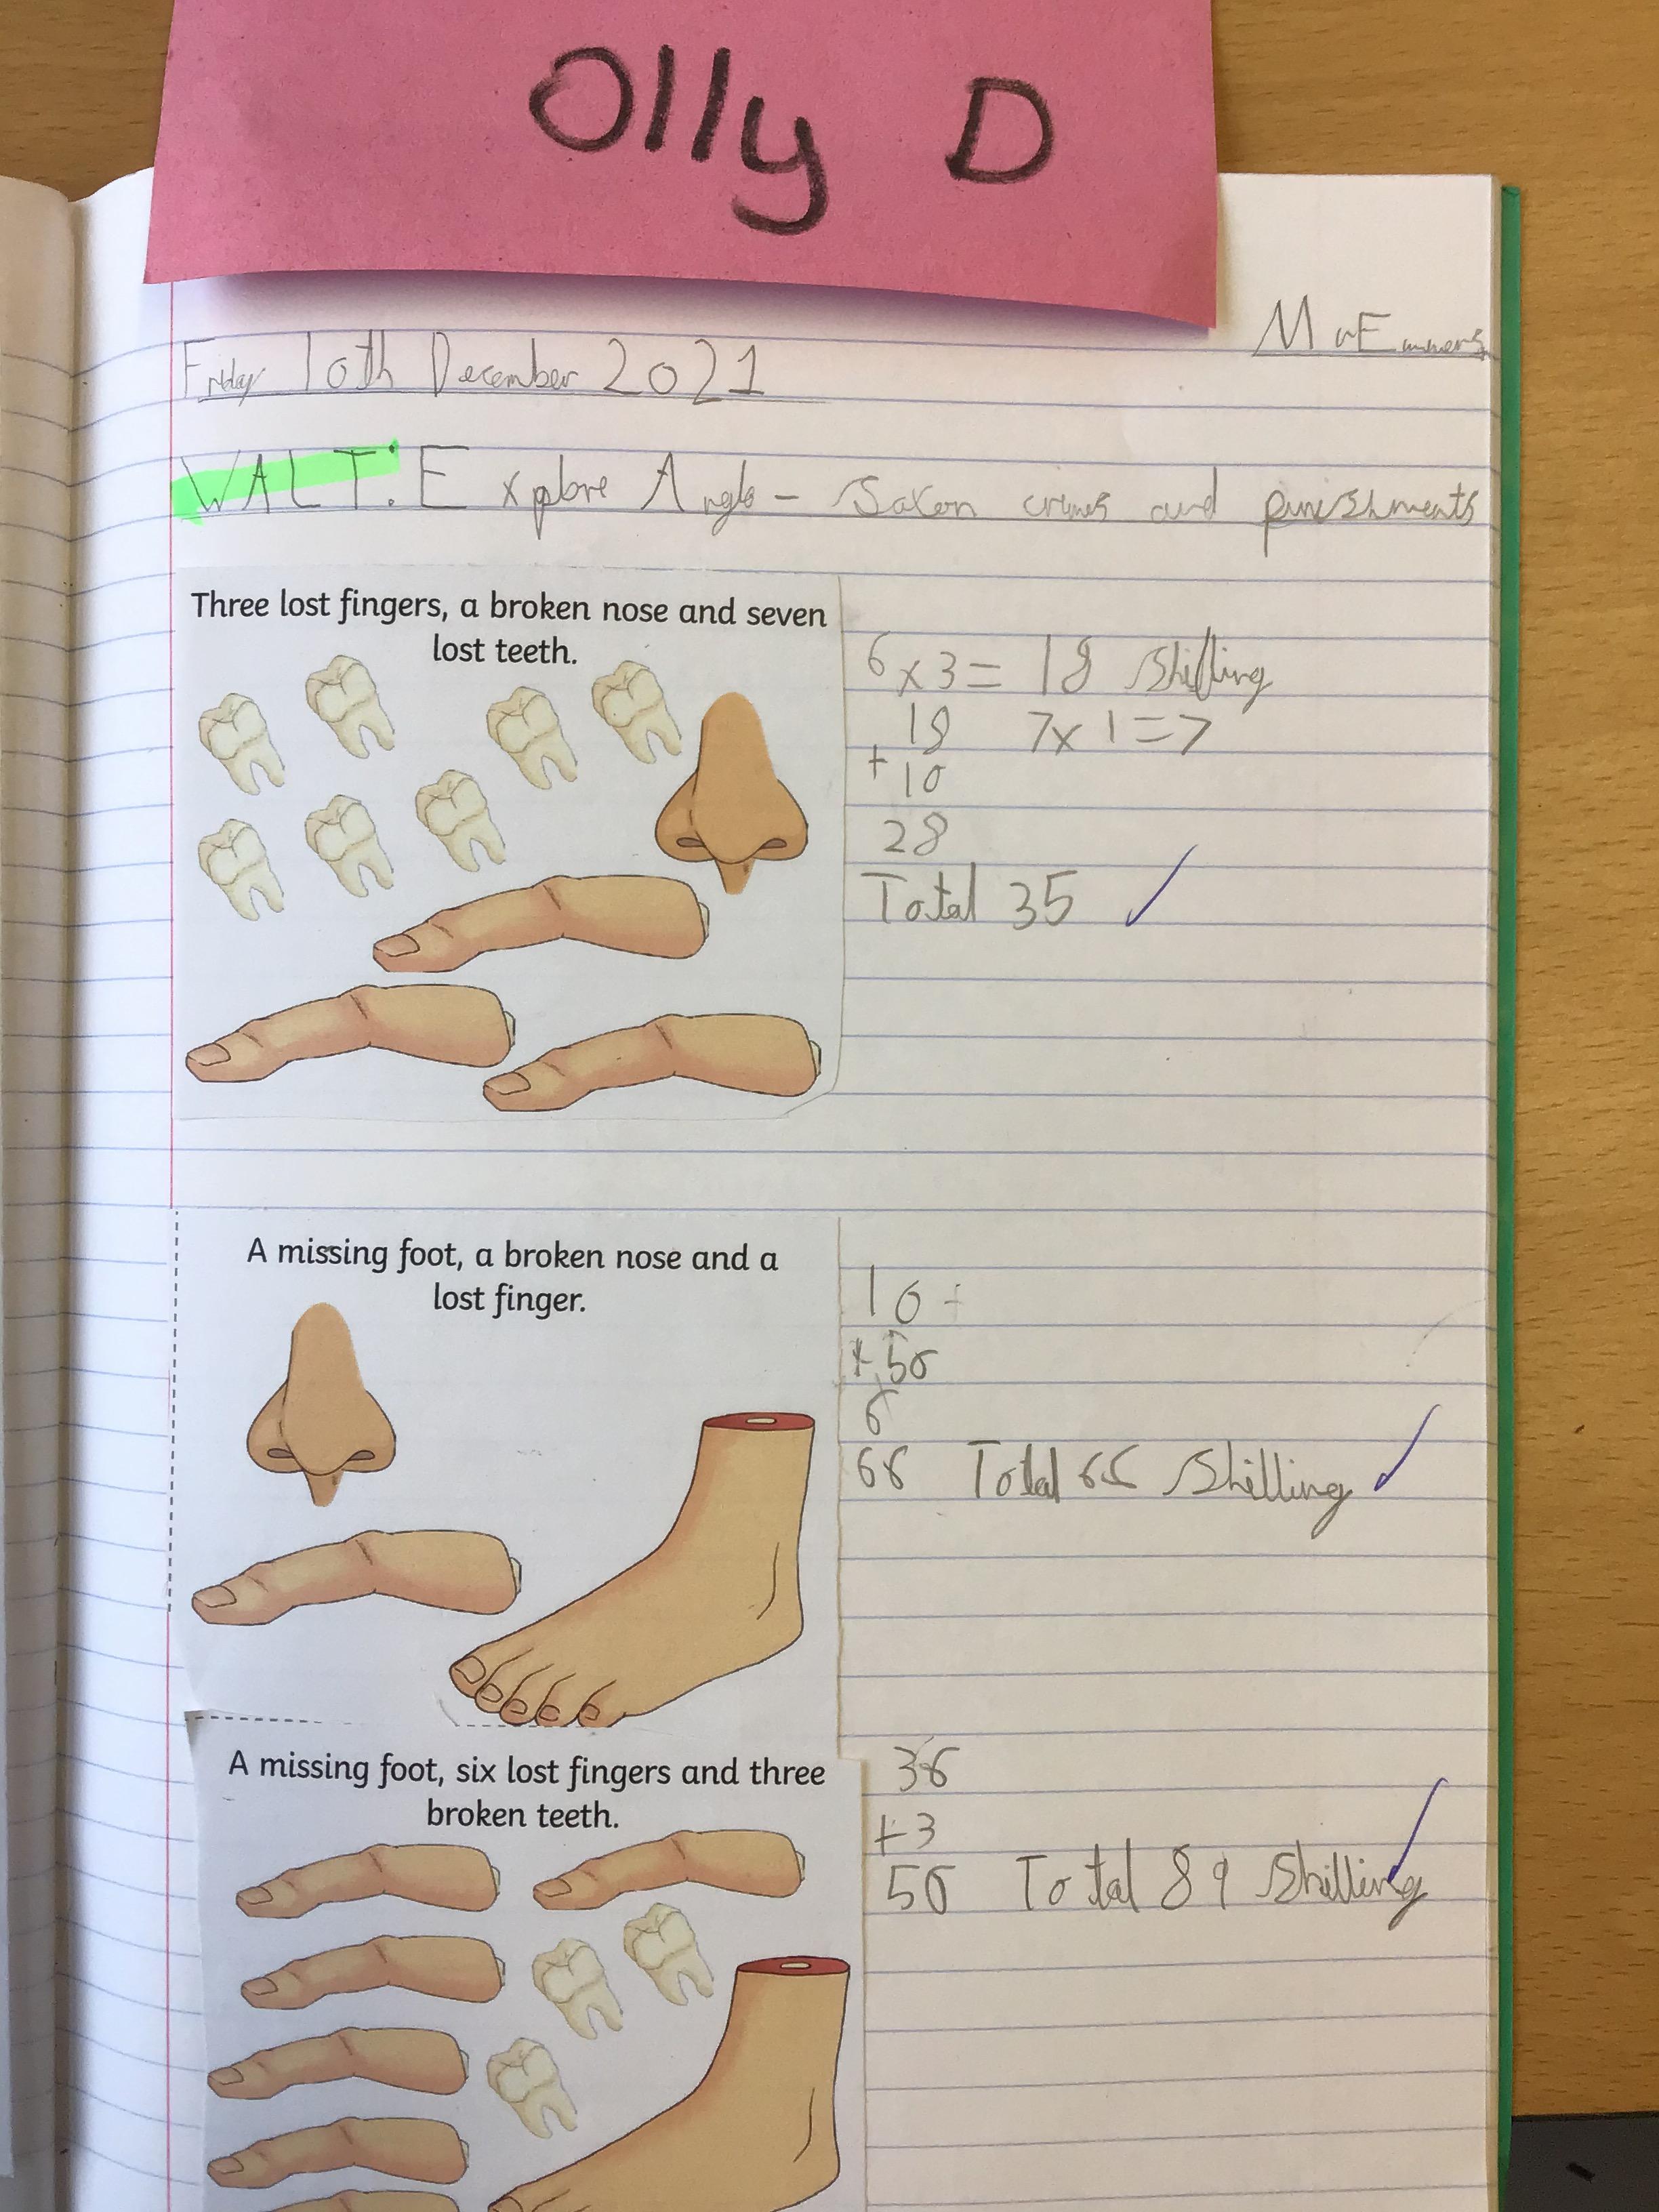 Olly D
Mr Emmens
Friday 10th December 2021
WALT: Explore Anglo-Saxon crimes and punishments
Three lost fingers, a broken nose and seven
lost teeth.
6x3= 18 Shilling
18 7x1=7
+10
28
Total 35
A missing foot, a broken nose and a
lost finger.
10
+50
6
66 Total 66 Shilling
A missing foot, six lost fingers and three
broken teeth.
36
+3
50 Total 89 Shilling